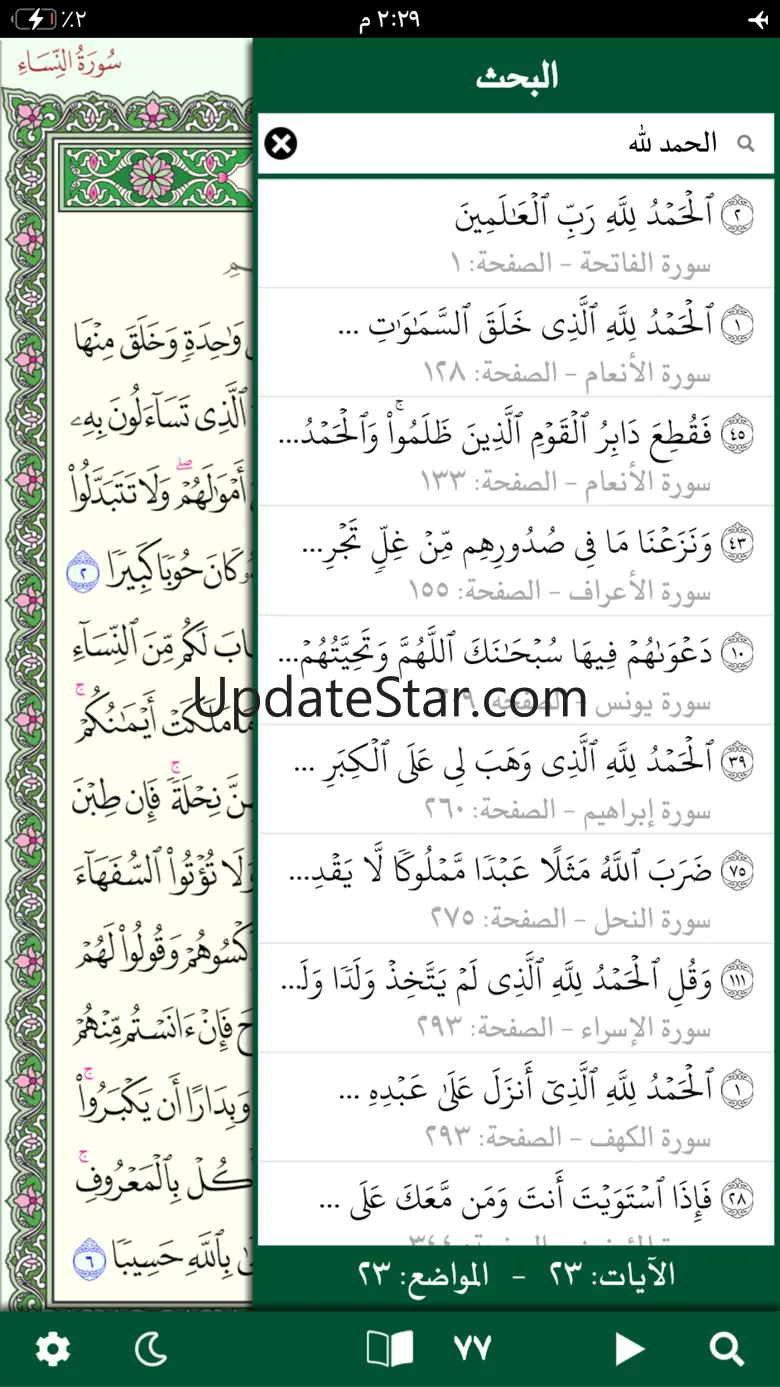 ٪٢
٢:٢٩ م
سُورَةُ النِّسَاءِ
البحث
الحمد لله
ٱلۡحَمۡدُ لِلَّهِ رَبِّ ٱلۡعَٰلَمِينَ ٢
سورة الفاتحة - الصفحة: ١
ٱلۡحَمۡدُ لِلَّهِ ٱلَّذِي خَلَقَ ٱلسَّمَٰوَٰتِ ... ١
سورة الأنعام - الصفحة: ١٢٨
فَقُطِعَ دَابِرُ ٱلۡقَوۡمِ ٱلَّذِينَ ظَلَمُواْۚ وَٱلۡحَمۡدُ... ٤٥
سورة الأنعام - الصفحة: ١٣٣
وَنَزَعۡنَا مَا فِي صُدُورِهِم مِّنۡ غِلّٖ تَجۡرِ... ٤٣
سورة الأعراف - الصفحة: ١٥٥
دَعۡوَىٰهُمۡ فِيهَا سُبۡحَٰنَكَ ٱللَّهُمَّ وَتَحِيَّتُهُمۡ... ١٠
سورة يونس - الصفحة:
UpdateStar.com
ٱلۡحَمۡدُ لِلَّهِ ٱلَّذِي وَهَبَ لِي عَلَى ٱلۡكِبَرِ ... ٣٩
سورة إبراهيم - الصفحة: ٢٦٠
ضَرَبَ ٱللَّهُ مَثَلًا عَبۡدٗا مَّمۡلُوكٗا لَّا يَقۡدِ... ٧٥
سورة النحل - الصفحة: ٢٧٥
وَقُلِ ٱلۡحَمۡدُ لِلَّهِ ٱلَّذِي لَمۡ يَتَّخِذۡ وَلَدٗا وَلَ... ١١١
سورة الإسراء - الصفحة: ٢٩٣
ٱلۡحَمۡدُ لِلَّهِ ٱلَّذِيٓ أَنزَلَ عَلَىٰ عَبۡدِهِ ... ١
سورة الكهف - الصفحة: ٢٩٣
فَإِذَا ٱسۡتَوَيۡتَ أَنتَ وَمَن مَّعَكَ عَلَى ... ٢٨
الآيات: ٢٣ - المواضع: ٢٣
وَٰحِدَةٖ وَخَلَقَ مِنۡهَا
ٱلَّذِي تَسَآءَلُونَ بِهِۦ
أَمۡوَٰلَهُمۡۖ وَلَا تَتَبَدَّلُواْ
كَانَ حُوبٗا كَبِيرٗا ٢
لَكُم مِّنَ ٱلنِّسَآءِ
مَلَكَتۡ أَيۡمَٰنُكُمۡۚ
نِحۡلَةٗۚ فَإِن طِبۡنَ
وَلَا تُؤۡتُواْ ٱلسُّفَهَآءَ
وَقُولُواْ لَهُمۡ
فَإِنۡ ءَانَسۡتُم مِّنۡهُمۡ
وَبِدَارًا أَن يَكۡبَرُواْۚ
بِٱلۡمَعۡرُوفِۚ
بِٱللَّهِ حَسِيبٗا ٦
٧٧